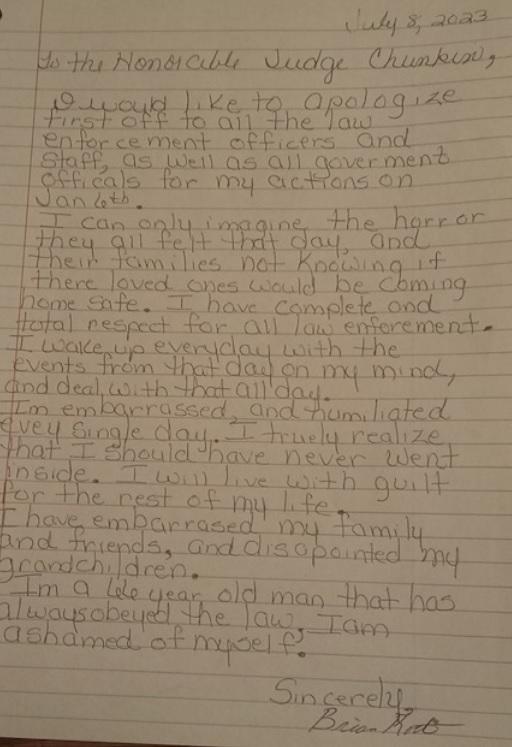 July 8, 2023
to the Honorable Judge Chunkin,
I would like to apologize
first off to all the law
enforcement officers and
staff, as well as all goverment
officals for my actions on
Jan 6th.
I can only imagine the horror
they all felt that day, and
their families not knowing if
there loved ones would be coming
home safe. I have complete and
total respect for all law enforement.
I wake up everyday with the
events from that day on my mind,
and deal with that all day.
Im embarrassed, and humiliated
evey single day. I truely realize
that I should have never went
inside. I will live with guilt
for the rest of my life.
I have embarrased my family
and friends, and disapointed my
grandchildren.
Im a 66 year old man that has
always obeyed the law. I am
ashamed of myself.
Sincerely,
Brian